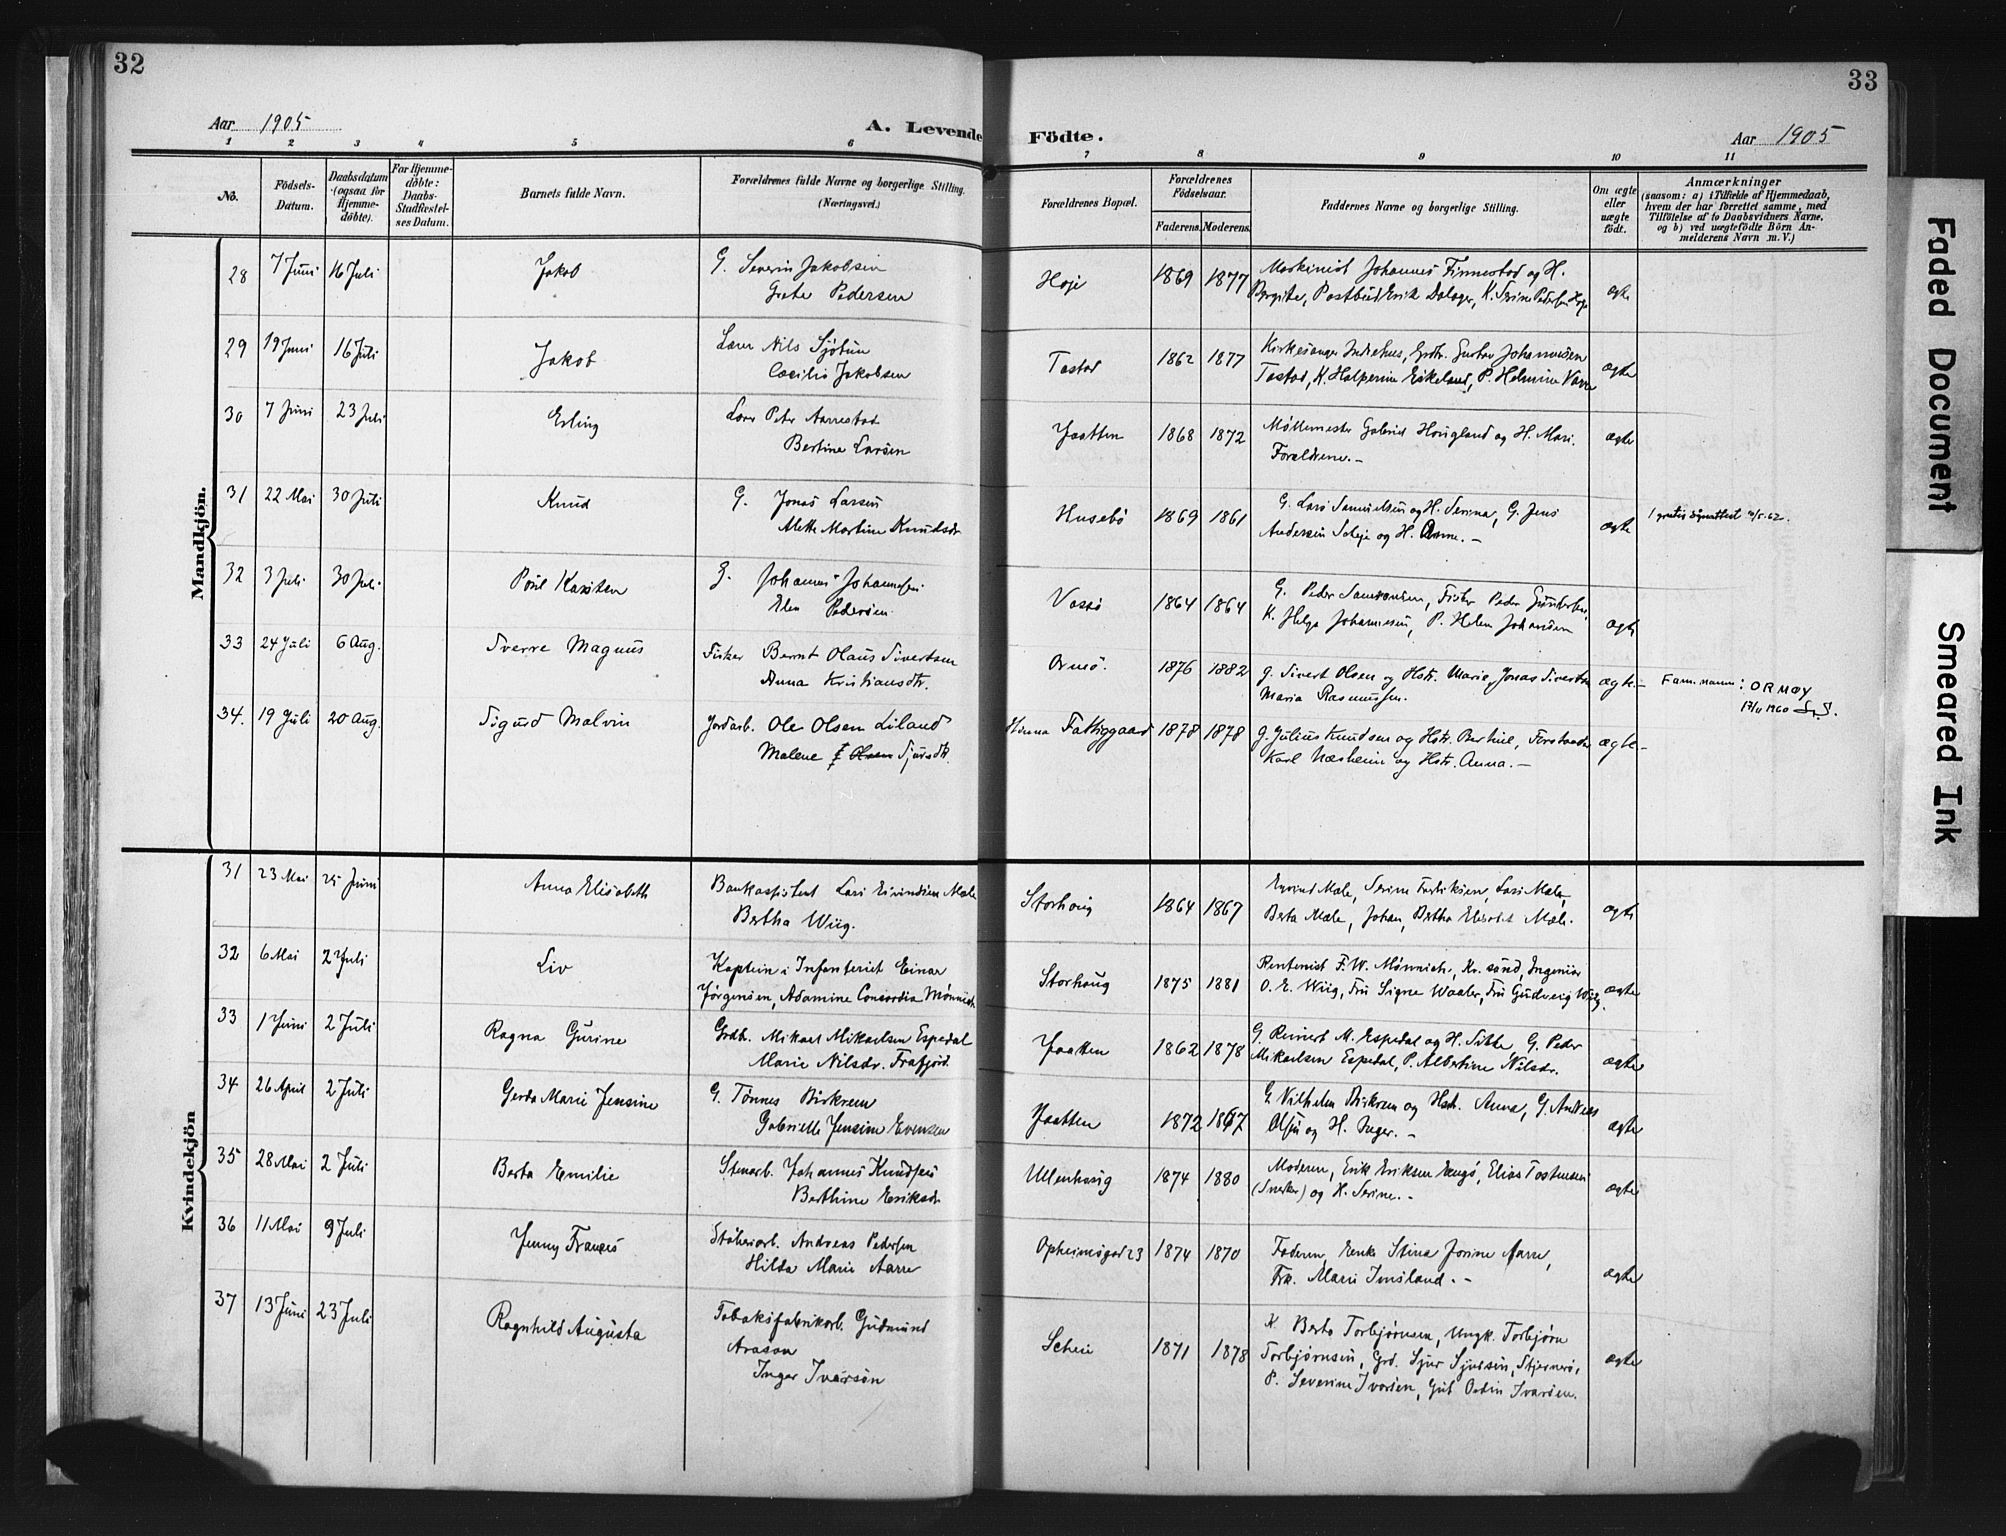 32
33
Aar 1905
A. Levende Födte.
Aar 1905
1 2 3 4 5 6 7 8 9 10 11
No.
Födsels-Datum.
Daabsdatum (ogsaa for Hjemmedøbte).
For Hjemmedøbte: Daabs-Stadfestelses Datum.
Barnets fulde Navn.
Forældrenes fulde Navne og borgerlige Stilling. (Næringsvei.)
Forældrenes Bopæl.
Forældrenes Födselsaar.
Faderens. Moderens.
Faddernes Navne og borgerlige Stilling.
Om ægte eller uægte födt.
Anmærkninger
(saasom: a) i Tilfælde af Hjemmedaab, hvem der har forrettet samme, med Tilföielse af to Daabsvidners Navne, og b) ved uægtefödte Börn Anmelderens Navn m. V.)
Mandkjön.
28 7 Juni 16 Juli Jakob G. Severin Jakobsen Hoje 1869 1877 Maskinist Johannes Finnestad og H. ægte
Grete Pedersen Bergite, Postbud Erik Dalager, K. Serine Pedersen Hoje
29 19 Juni 16 Juli Jakob Lærer Nils Sjøtun Tastad 1862 1877 Kirkesanger Indrehus, Grdr. Gustav Johannesen ægte
Cæcilie Jakobsen Tastad, K. Halperine Eskeland, P. Helmine Varre
30 7 Juni 23 Juli Erling Lærer Peter Aarrestad Jaatten 1868 1872 Møllemester Gabriel Hougland og H. Mari. ægte
Bertine Larsen Forældrene. -
31 22 Mai 30 Juli Knud G. Jonas Larsen Husebö 1869 1861 G. Lars Samuelsen og H. Serina, G. Jens ægte 1 gratis dpnattest 10/5.62.
Alette Martine Knudsdr Andersen Scheje og H. Anne. -
32 3 Juli 30 Juli Poul Karsten G. Johannes Johannesen Vassö 1864 1864 G. Peder Samsonsen, Fisker Peder Gundersen, ægte
Elen Pedersen K. Helga Johannesen, P. Helen Johansen
33 24 Juli 6 Aug. Sverre Magnus Fisker Bernt Olaus Sivertsen Ormö. 1876 1882 G. Sivert Olsen og Hstr. Marie, Jonas Sivertsen ægte - Fam. navn: ORMØY
Anna Kristiansdtr. Maria Rasmussen. 17/11 1960
34. 19 Juli 20 Aug. Sigurd Malvin Jordarb. Ole Olsen Liland Hinna Fattiggaard 1878 1878 G. Julius Knudsen og Hstr. Berthie, Forstander ægte -
Malene Olsen Sjursdtr. Karl Næsheim og Hstr. Anna. -
Kvindekjön
31 23 Mai 25 Juni Anna Elisabeth Bankassistent Lars Eivindsen Mæle Storhoug 1864 1867 Eyvind Mæle, Serine Fredriksen, Lars Mæle, ægte
Bertha Wiig. Berta Mæle, Johan, Bertha Elisabet Mæle.
32 6 Mai 2 Juli Liv Kaptein i Infanteriet Einar Storhoug 1875 1881 Rentenist F. W. Mønnich, Kr.sand, Ingeniør ægte
Jörgensen, Adamine Concordia Mønnich O. E. Wiig, Fru Signe Waaler, Fru Gudveig Wiig.
33 1 Juni 2 Juli Ragna Gurine Grdb. Mikael Mikaelsen Espedal Jaatten 1862 1878 G. Reinert M. Espedal og H. Sitte, G. Peder ægte
Marie Nilsdr. Frafjord. Mikaelsen Espedal, P. Albertine Nilsdr.
34 26 April 2 Juli Gerda Marie Jensine G. Tönnes Birkrem Jaatten 1872 1867 G. Vilhelm Birkrem og Hstr. Anna, G. Andreas ægte
Gabrielle Jensine Evensen og H. Inger. -
35 28 Mai 2 Juli Berta Emilie Stenarb. Johannes Knudsen Ullenhaug 1874 1880 Moderen, Erik Eriksen Rengö, Elias Tostensen ægte
Berthine Eriksdr (Snekker) og H. Serine. -
36 11 Mai 9 Juli Jenny Frances Stöberiarb. Andreas Pedersen Opheimsgad 23 1874 1870 Faderen, Enke Stina Josine Aarre, ægte
Hilda Marie Aarre Frk. Marie Imsland. -
37 13 Juni 23 Juli Ragnhild Augusta Tobaksfabrikarb. Gudmund Scheie 1871 1878 K. Berta Torbjørnsen, Ungk. Torbjørn ægte
Arason Torbjørnsen, Grd. Sjur Sjursen, Stjernerö,
Inger Ivarsön P. Severine Ivarsen, Gut Odin Ivarsen.
Faded Document
Smeared Ink